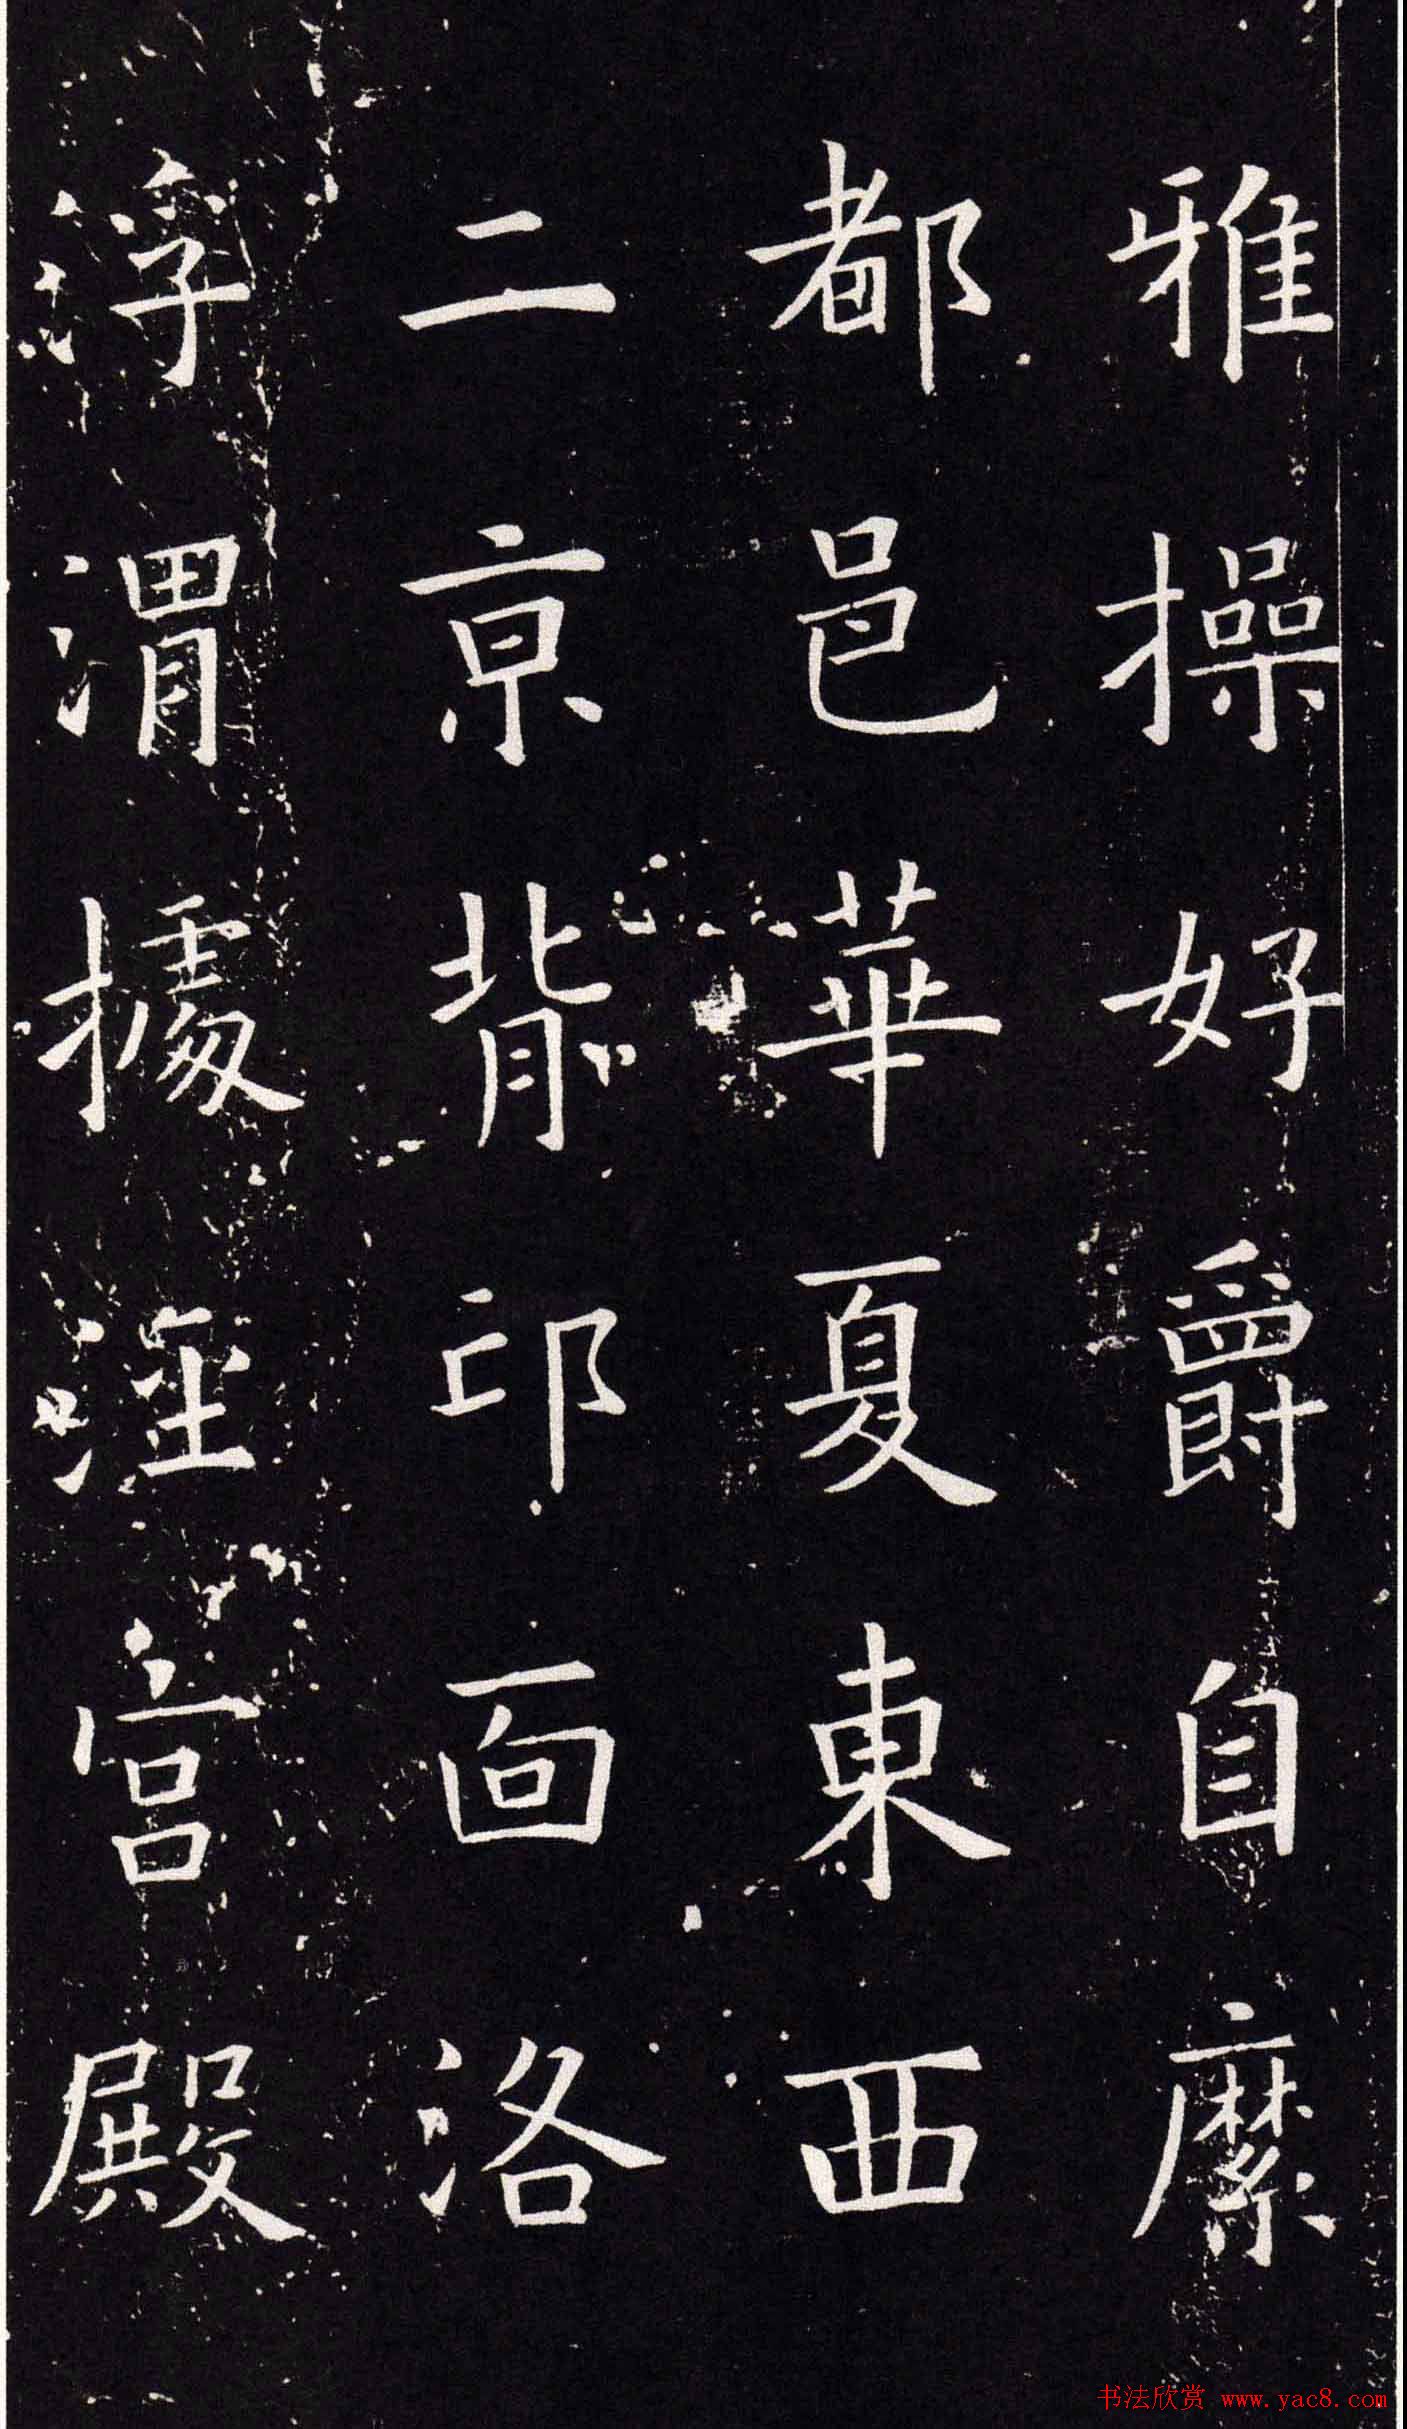 雅操好爵自縻
都邑華夏東西
二京背邙面洛
浮渭據涇宫殿
书法欣赏 www.yac8.com